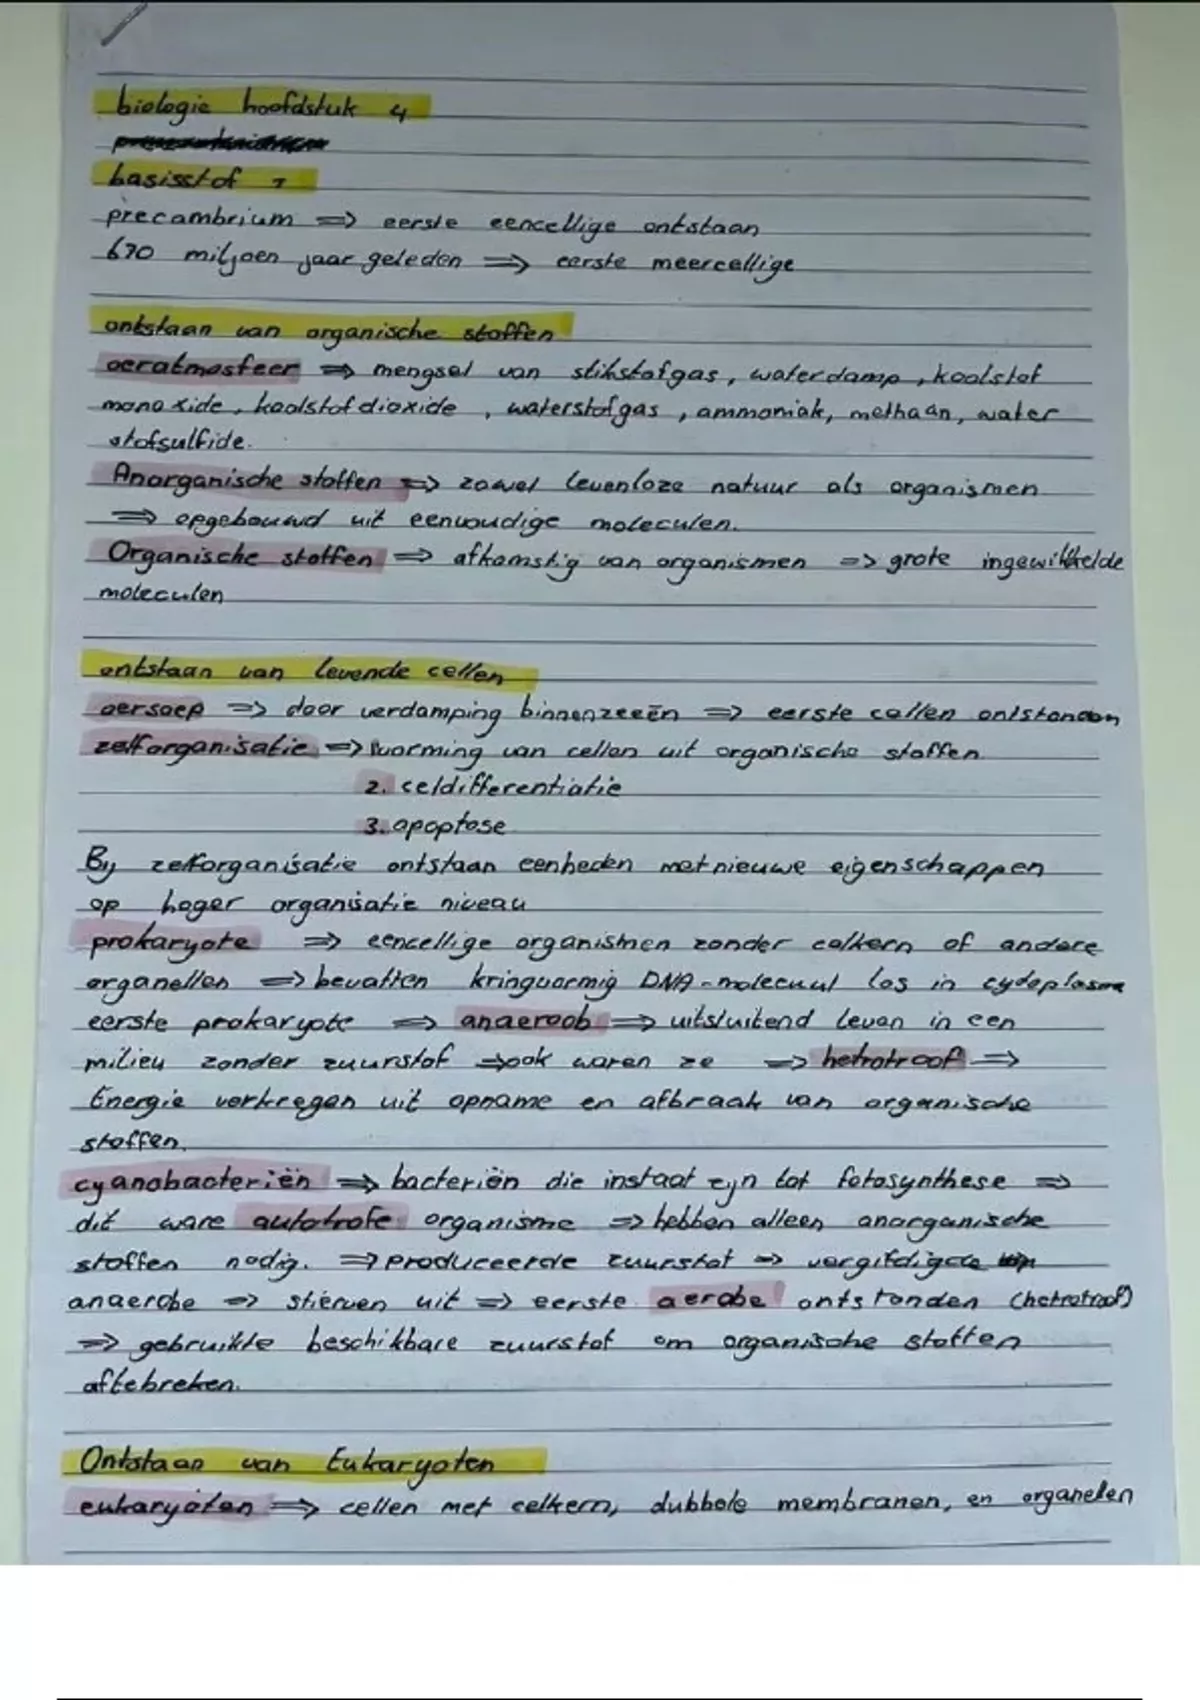 biologie hoofdstuk 4
basisstof 1
precambrium => eerste eencellige ontstaan
670 miljoen jaar geleden => eerste meercellige
ontstaan van organische stoffen
oeratmosfeer => mengsel van stikstofgas, waterdamp, koolstof
monoxide, koolstofdioxide, waterstofgas, ammoniak, methaan, water
stofsulfide.
Anorganische stoffen => zowel levenloze natuur als organismen
=> opgebouwd uit eenvoudige moleculen.
Organische stoffen => afkomstig van organismen => grote ingewikkelde
moleculen
ontstaan van levende cellen
oersoep => door verdamping binnenzeeën => eerste cellen ontstonden
zelforganisatie => 1 vorming van cellen uit organische stoffen
2. celdifferentiatie
3. apoptose
By zelforganisatie ontstaan eenheden met nieuwe eigenschappen
op hoger organisatie niveau
prokaryote => eencellige organismen zonder celkern of andere
organellen => bevatten kringvormig DNA-molecuul los in cydoplasma
eerste prokaryote => anaeroob => uitsluitend leven in een
milieu zonder zuurstof => ook waren ze => hetrotroof =>
Energie verkregen uit opname en afbraak van organische
stoffen.
cyanobacteriën => bacteriën die instaat zijn tot fotosynthese =>
dit ware autotrofe organisme => hebben alleen anorganische
stoffen nodig. => produceerde zuurstof => vergiftigde
anaerobe => stierven uit => eerste aerobe ontstonden (hetrotroof)
=> gebruikte beschikbare zuurstof om organische stoffen
aftebreken.
Ontstaan van Eukaryoten
eukaryoten => cellen met celkern, dubbele membranen, en organelen